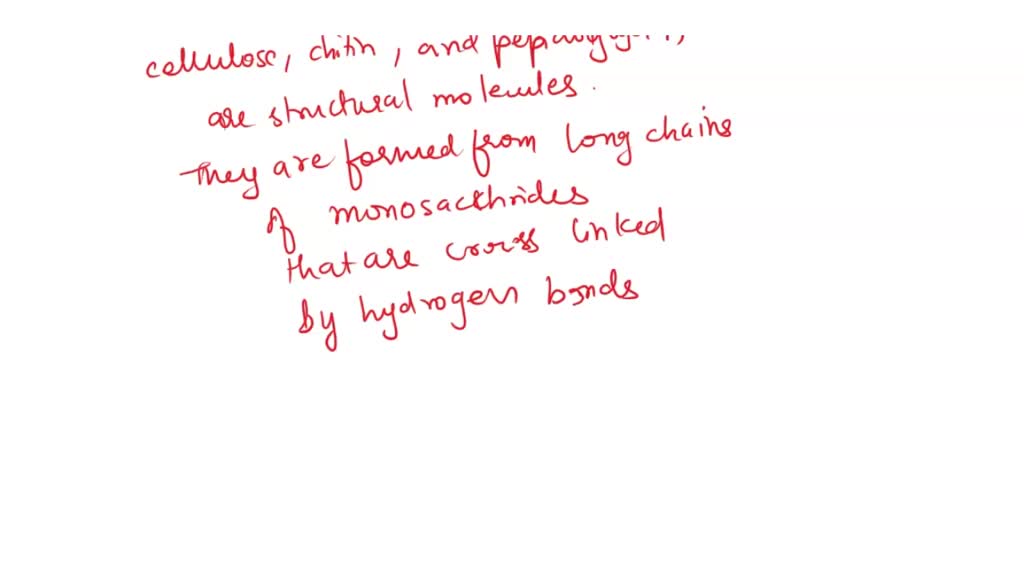 cellulose, chitin, and
are structural molecules.
They are formed from long chains
of monosacchrides
that are cross linked
by hydrogen bonds